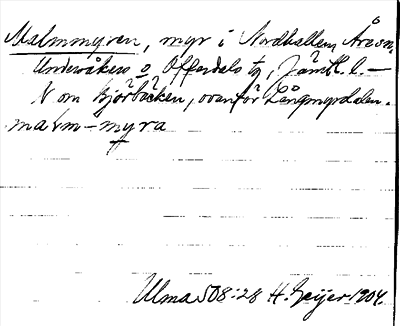 Malmmyren, myr i Nordhallens, Åre sn.
Undersåkers o Offerdals tg, Jämtl. l. —
N om Björbäcken, ovanför Långmyrdalen.
malm-myra
Ulma 508:28 H. Geijer 1904.